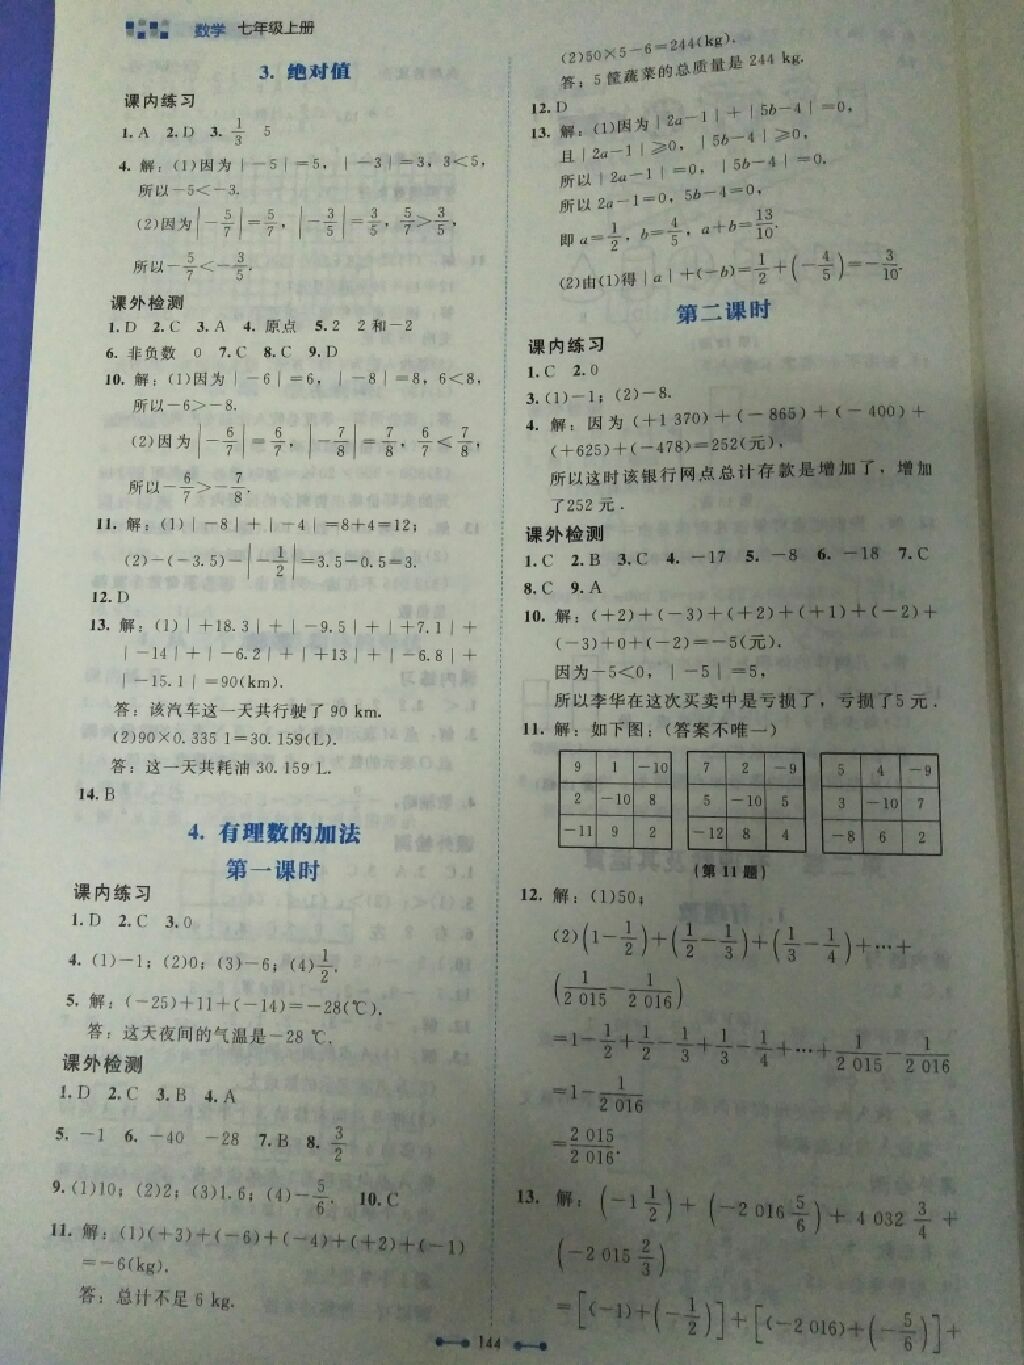 数学 七年级上册
3. 绝对值
课内练习
1. A 2. D 3. 1/3 5
4. 解：(1)因为|－5|＝5，|－3|＝3，3＜5，
所以－5＜－3.
(2)因为|－5/7|＝5/7，|－3/5|＝3/5，5/7＞3/5，
所以－5/7＜－3/5.
课外检测
1. D 2. C 3. A 4. 原点 5. 2 2和－2
6. 非负数 0 7. C 8. C 9. D
10. 解：(1)因为|－6|＝6，|－8|＝8，6＜8，
所以－6＞－8.
(2)因为|－6/7|＝6/7，|－7/8|＝7/8，6/7＜7/8，
所以－6/7＞－7/8.
11. 解：(1)|－8|＋|－4|＝8＋4＝12；
(2)－(－3.5)－|－1/2|＝3.5－0.5＝3.
12. D
13. 解：(1)|＋18.3|＋|－9.5|＋|＋7.1|＋
|－14|＋|－6.2|＋|＋13|＋|－6.8|＋
|－15.1|＝90(km).
答：该汽车这一天共行驶了 90 km.
(2)90×0.335 1＝30.159(L).
答：这一天共耗油 30.159 L.
14. B
4. 有理数的加法
第一课时
课内练习
1. D 2. C 3. 0
4. (1)－1；(2)0；(3)－6；(4)1/2.
5. 解：(－25)＋11＋(－14)＝－28(℃).
答：这天夜间的气温是－28 ℃.
课外检测
1. D 2. C 3. B 4. A
5. －1 6. －40 －28 7. B 8. 3/2
9. (1)10；(2)2；(3)1.6；(4)－5/6. 10. C
11. 解：(1)(＋3)＋(－6)＋(－4)＋(＋2)＋(－1)
＝－6(kg).
答：总计不足 6 kg.
(2)50×5－6＝244(kg).
答：5 筐蔬菜的总质量是 244 kg.
12. D
13. 解：(1)因为|2a－1|＋|5b－4|＝0，
且|2a－1|≥0，|5b－4|≥0，
所以|2a－1|＝0，|5b－4|＝0.
所以 2a－1＝0，5b－4＝0，
即 a＝1/2，b＝4/5，a＋b＝13/10.
(2)由(1)得|a|＋(－b)＝1/2＋(－4/5)＝－3/10.
第二课时
课内练习
1. C 2. 0
3. (1)－1；(2)－8.
4. 解：因为(＋1 370)＋(－865)＋(－400)＋
(＋625)＋(－478)＝252(元)，
所以这时该银行网点总计存款是增加了，增加
了252 元.
课外检测
1. C 2. B 3. C 4. －17 5. －8 6. －18 7. C
8. C 9. A
10. 解：(＋2)＋(－3)＋(＋2)＋(＋1)＋(－2)＋
(－3)＋0＋(－2)＝－5(元).
因为－5＜0，|－5|＝5，
所以李华在这次买卖中是亏损了，亏损了5 元.
11. 解：如下图：(答案不唯一)
9 1 －10 7 2 －9 5 4 －9
2 －10 8 5 －10 5 3 －10 7
－11 9 2 －12 8 4 －8 6 2
(第 11 题)
12. 解：(1)50；
(2)(1－1/2)＋(1/2－1/3)＋(1/3－1/4)＋…＋
(1/2 015－1/2 016)
＝1－1/2＋1/2－1/3＋1/3－1/4＋…＋1/2 015－1/2 016
＝1－1/2 016
＝2 015/2 016.
13. 解：(－1 1/2)＋(－2 016 5/6)＋4 032 3/4＋
(－2 015 2/3)
＝[(－1)＋(－1/2)]＋[(－2 016)＋(－5/6)]＋
144